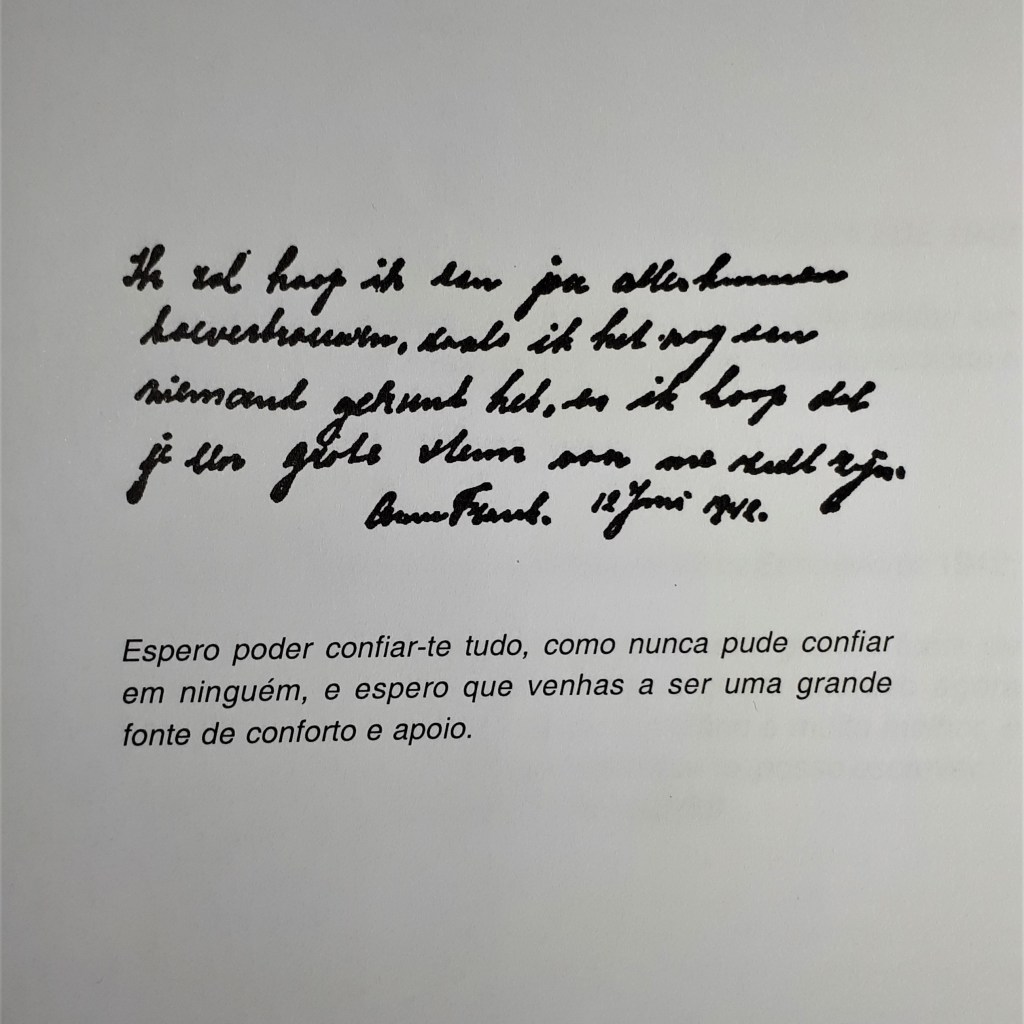 Ik zal hoop ik aan jou alles kunnen
toevertrouwen, zoals ik het nog aan
niemand gekund heb, en ik hoop dat
je een grote steun voor me zult zijn.
Anne Frank. 12 Juni 1942.
Espero poder confiar-te tudo, como nunca pude confiar
em ninguém, e espero que venhas a ser uma grande
fonte de conforto e apoio.